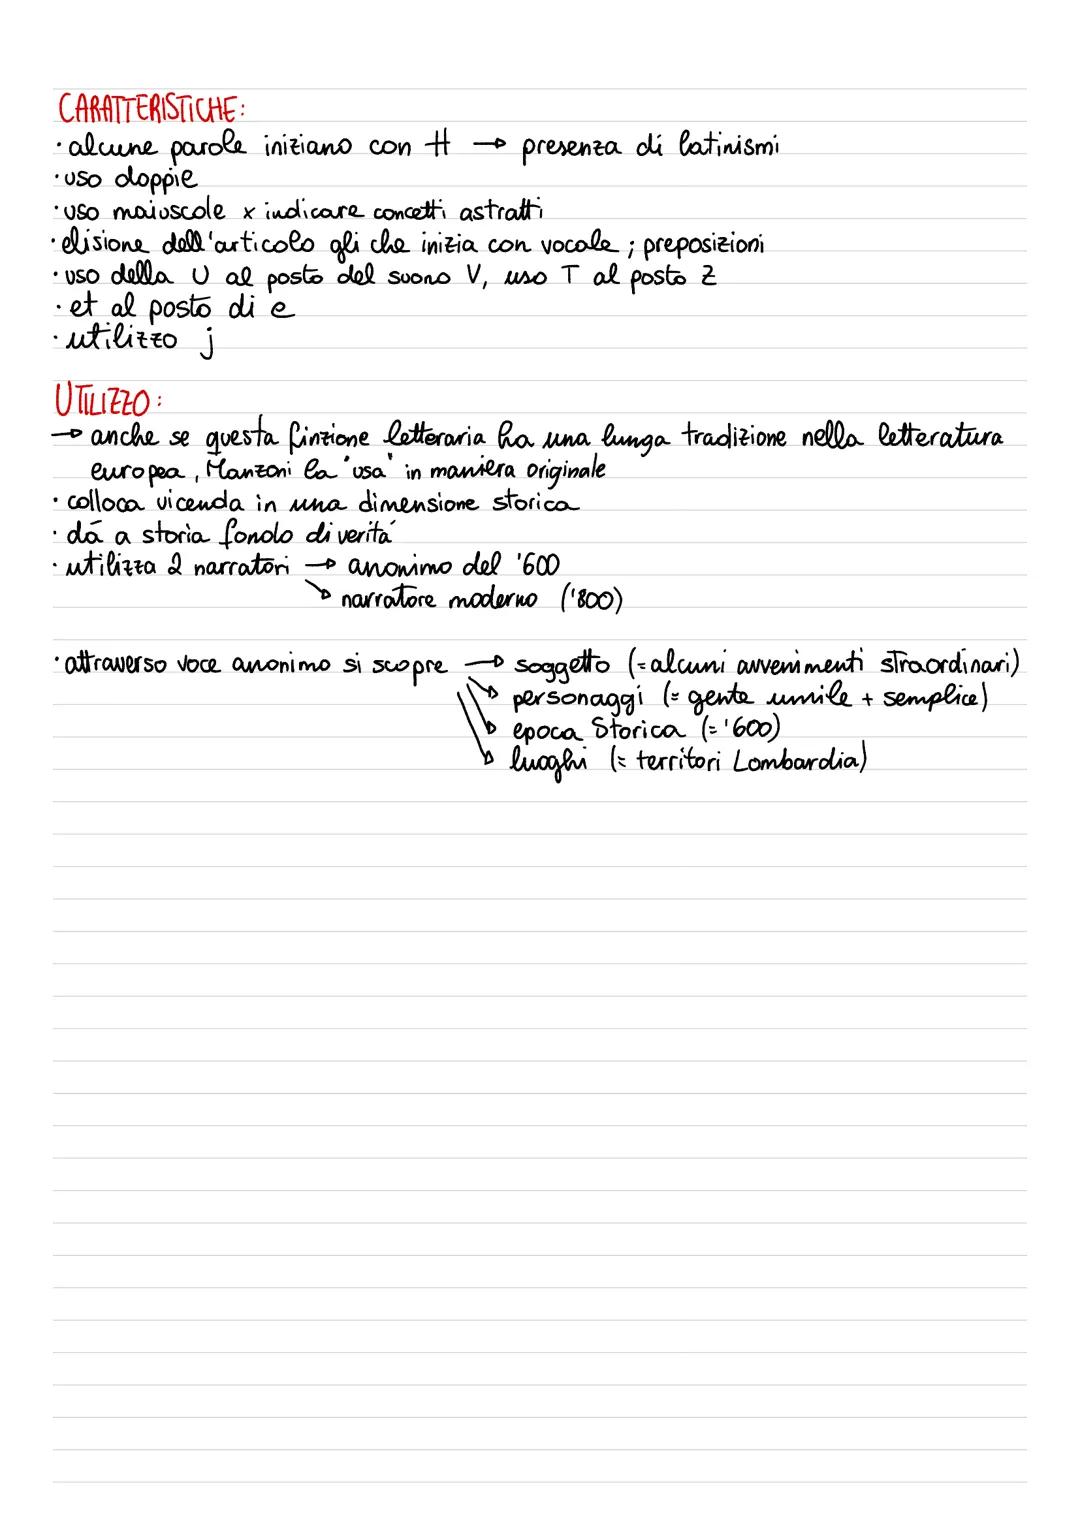 CARATTERISTICHE:
· alcune parole iniziano con H → presenza di latinismi
· uso doppie
· uso maiuscole x indicare concetti astratti
· elisione dell'articolo gli che inizia con vocale ; preposizioni
· uso della U al posto del suono V, uso T al posto Z
· et al posto di e
· utilizzo j
UTILIZZO:
→ anche se questa finzione letteraria ha una lunga tradizione nella letteratura
europea, Manzoni la "usa" in maniera originale
· colloca vicenda in una dimensione storica
· dá a storia fondo di veritá
· utilizza 2 narratori → anonimo del '600
↘ narratore moderno ('800)
· attraverso voce anonimo si scopre → soggetto (=alcuni avvenimenti straordinari)
↘ personaggi (= gente umile + semplice)
↘ epoca Storica (= '600)
↘ luoghi (= territori Lombardia)